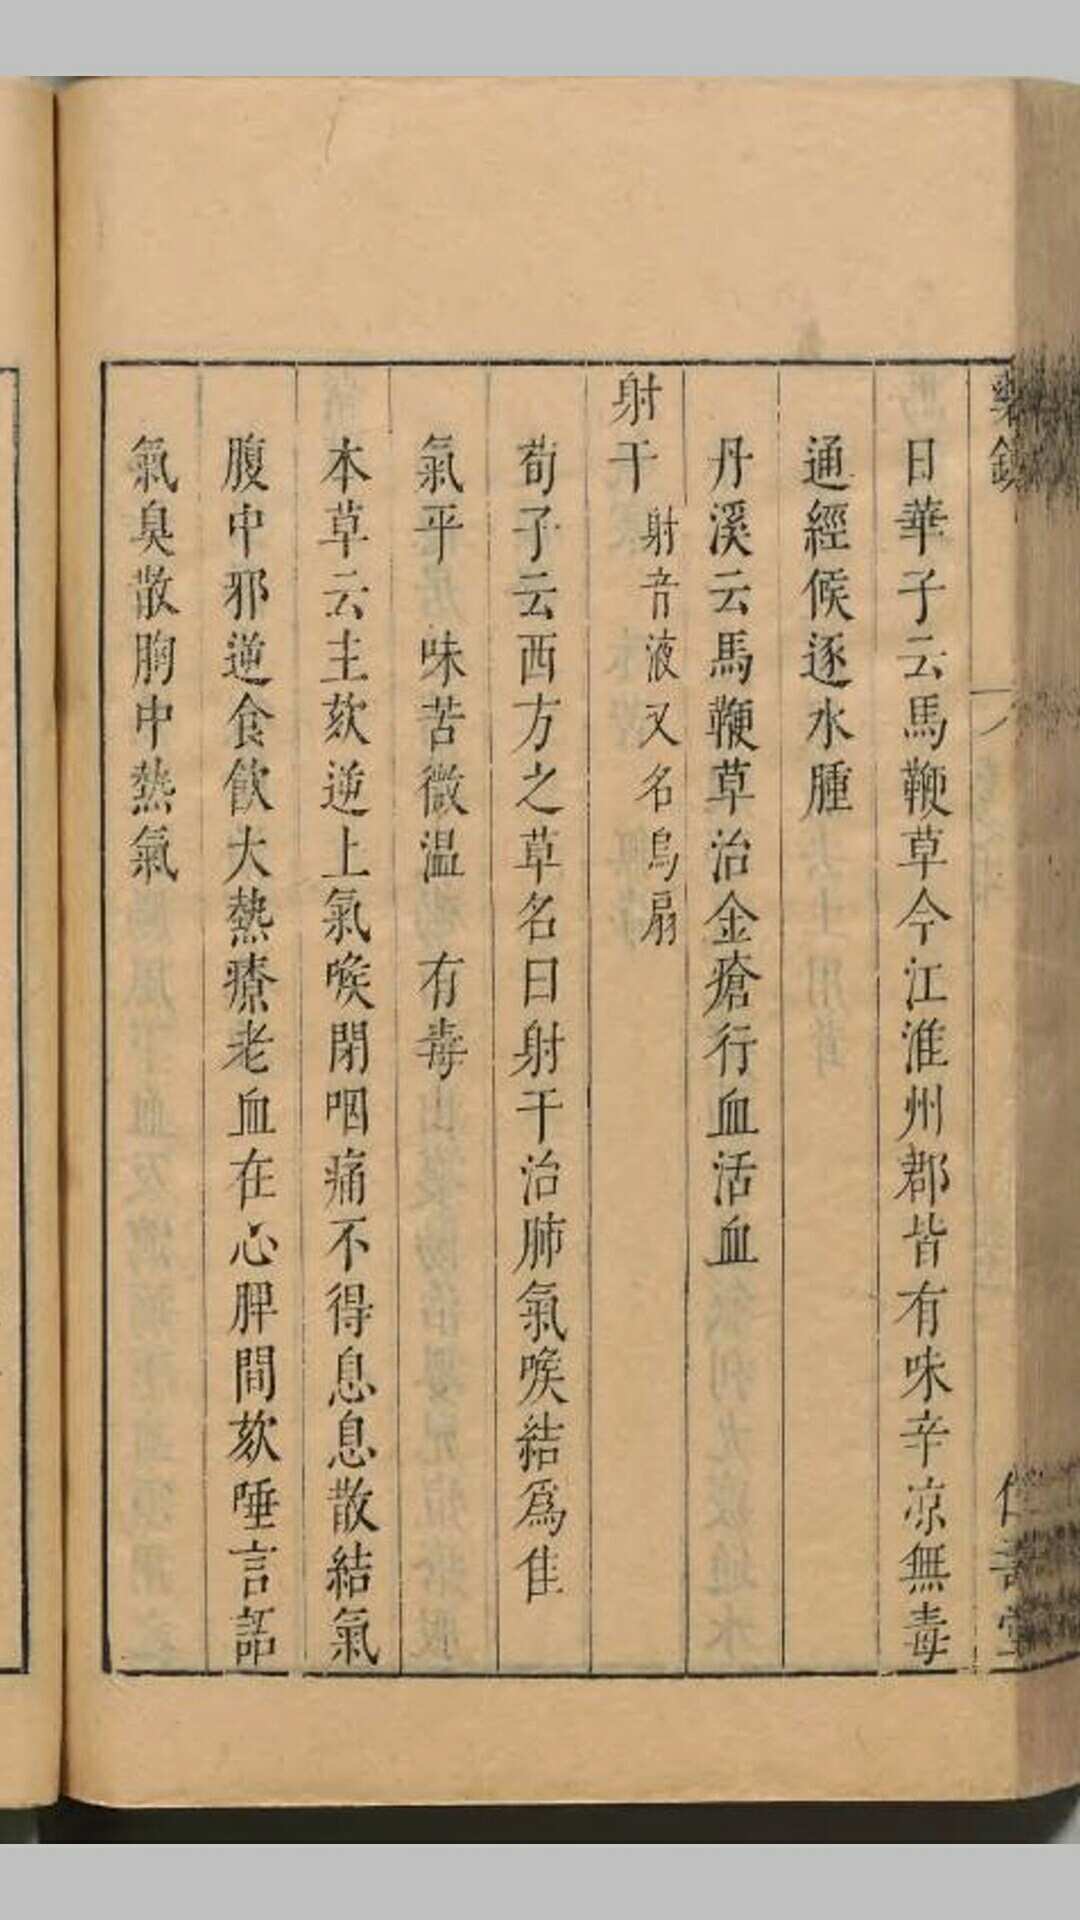 日華子云馬鞭草今江淮州郡皆有味辛凉無毒
通經候逐水腫
丹溪云馬鞭草治金瘡行血活血
射干 射音液又名烏扇
荀子云西方之草名曰射干治肺氣喉結爲佳
氣平 味苦微温 有毒
本草云主欬逆上氣喉閉咽痛不得息息散結氣
腹中邪逆食飲大熱療老血在心脾間欬唾言語
氣臭散胸中熱氣